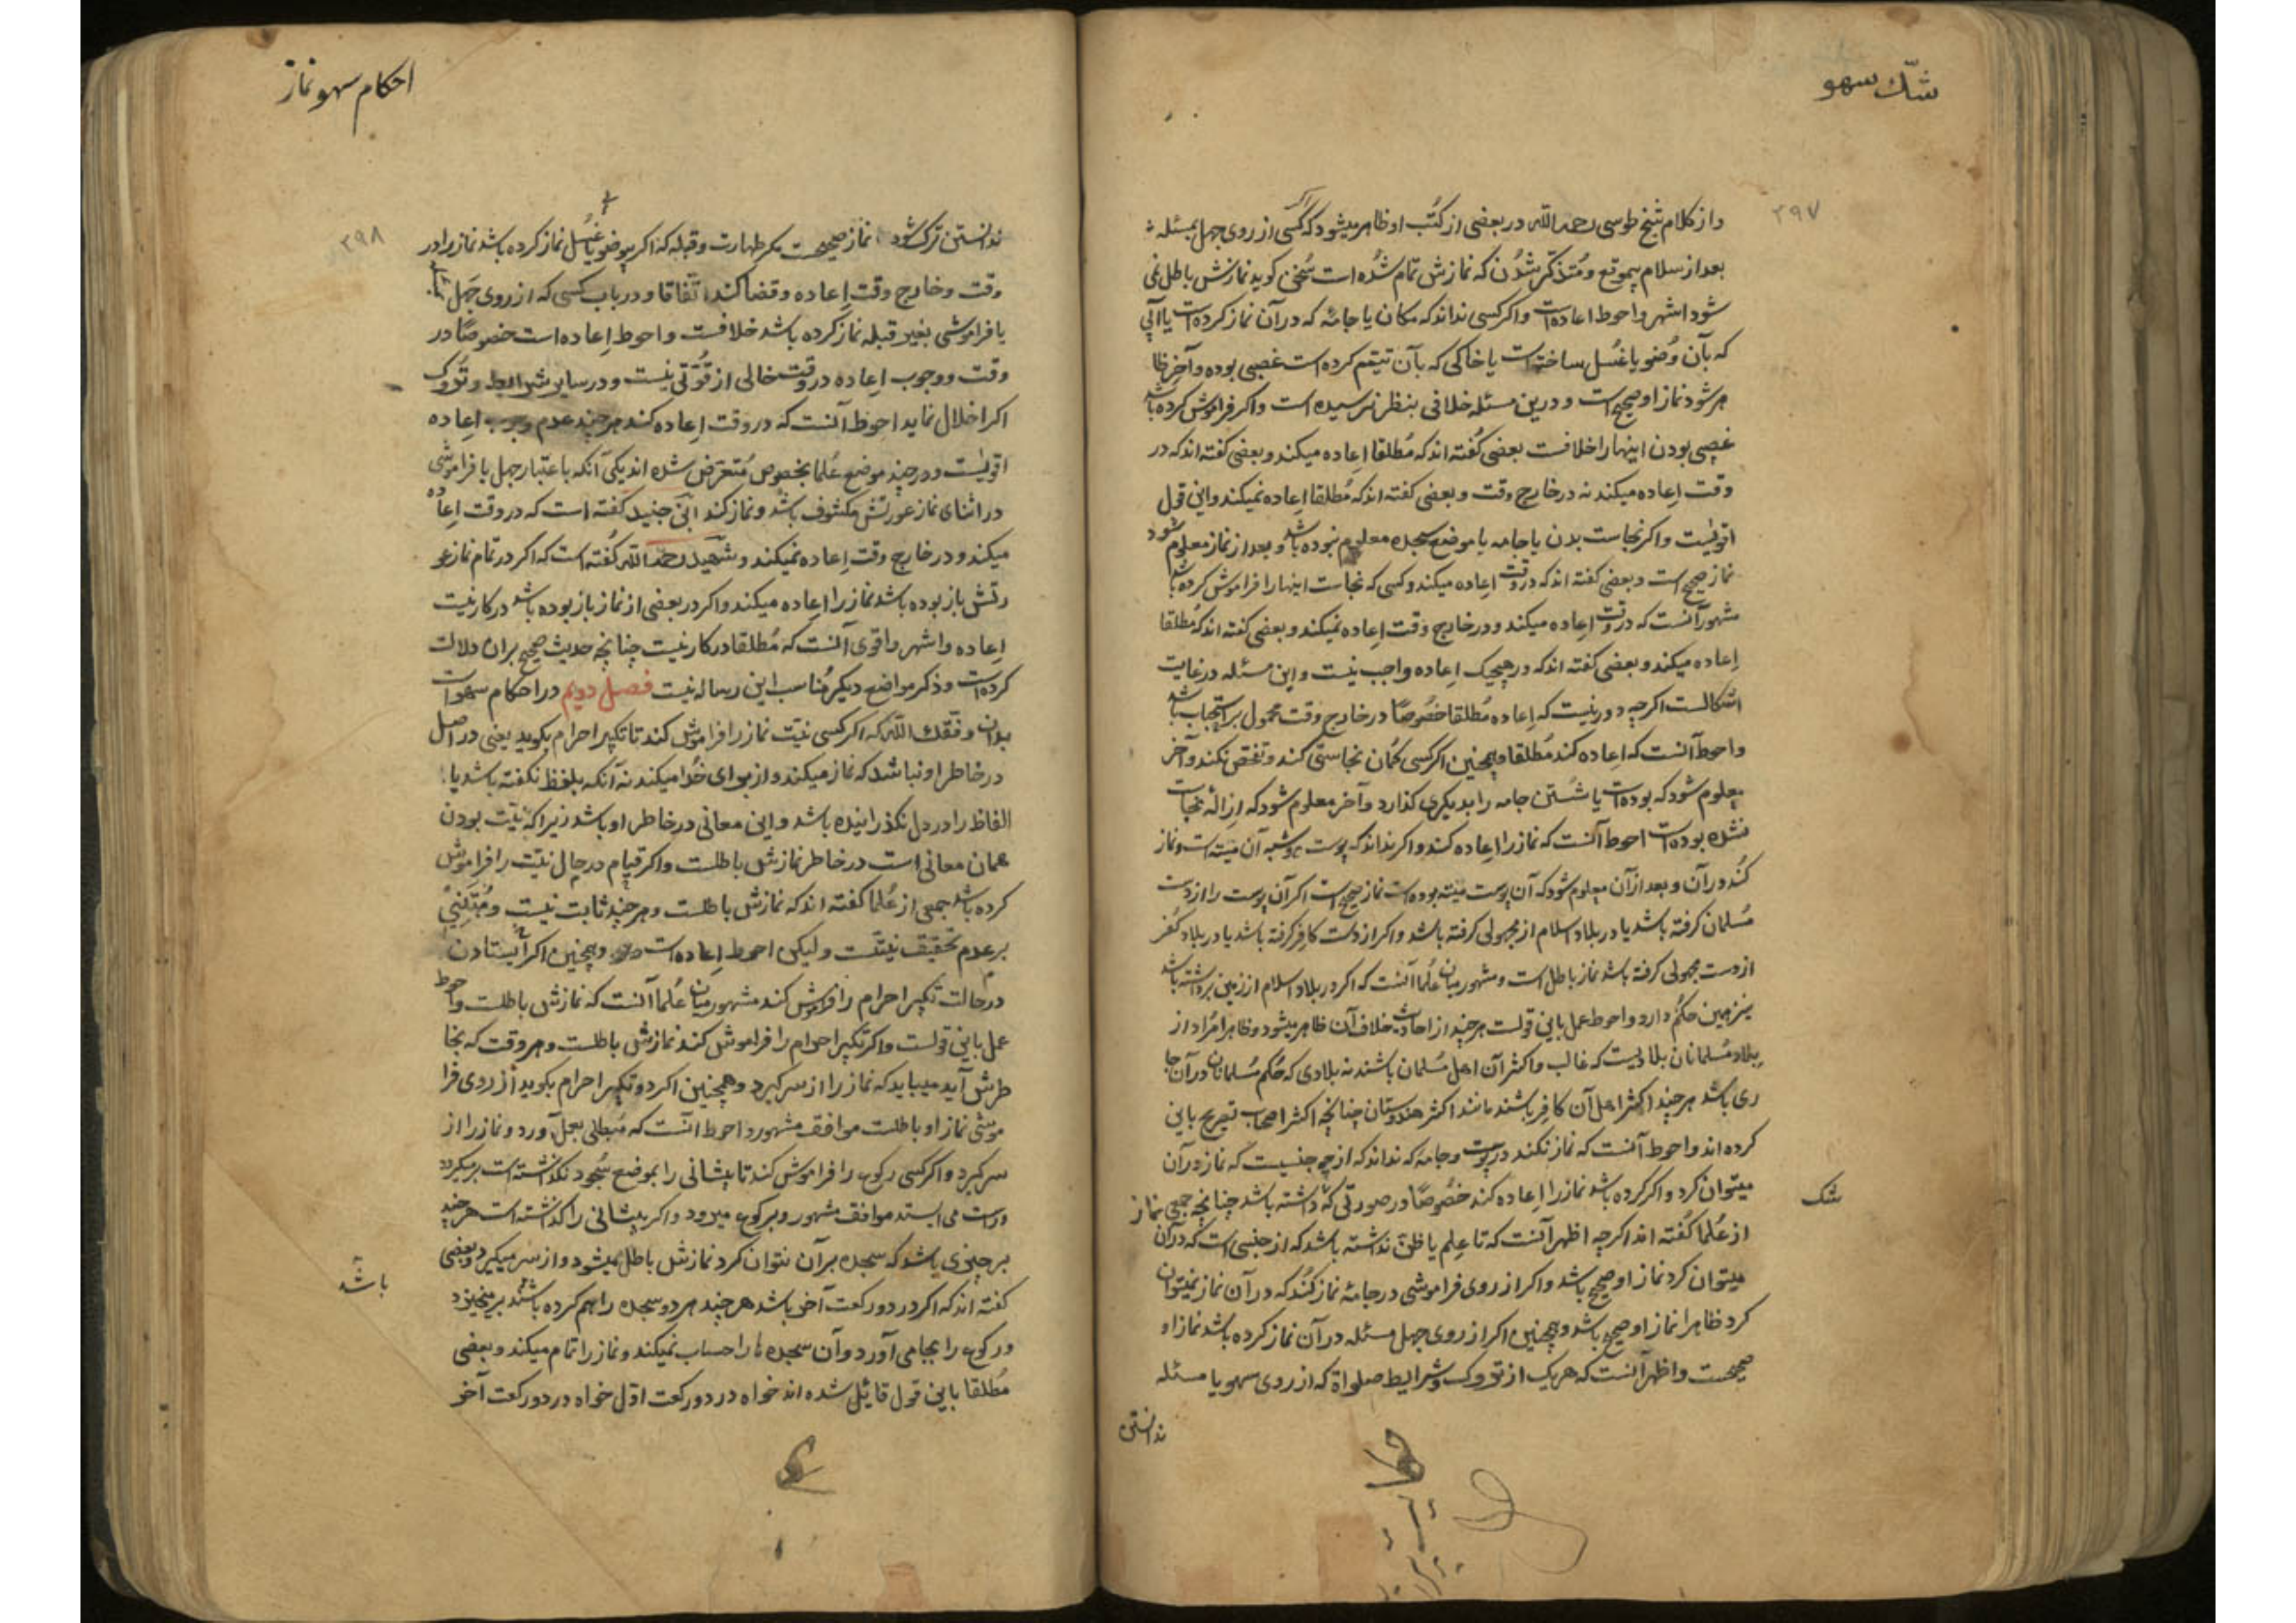 شکّ سهو
۳۹۷
و از کلام شیخ طوسی رحمه الله در بعضی از کتُب او ظاهر میشود که اگر کسی از روی جهل بمسئله
بعد از سلام بیموقع و مُتذکّر شدُن که نمازش تمام شُده است سُخن کوید نمازش باطل نمی
شود اشهر و احوط اعاده است و اکر کسی نداند که مکان یا جامهٔ که در آن نماز کرده است یا آبی
که بآن وُضو یا غُسل ساخته است یا خاکی که بآن تیمّم کرده است غصبی بوده و آخر ظا
هر شود نماز او صحیح است و درین مسئله خلافی بنظر نرسیده است و اکر فراموش کرده باشد
غصبی بودن اینها را خلافست بعضی کُفته اند که مُطلقا اِعاده میکند و بعضی کفته اند که در
وقت اِعاده میکند نه در خارج وقت و بعضی کفته اند که مُطلقا اِعاده نمیکند و این قول
اقویست و اکر نجاست بدن یا جامه یا موضع سجده معلوم نبوده باشد و بعد از نماز معلوم شود
نماز صحیح است و بعضی کفته اند که در وقت اِعاده میکند و کسی که نجاست اینها را فراموش کرده باشد
مشهور آنست که در وقت اِعاده میکند و در خارج وقت اِعاده نمیکند و بعضی کفته اند که مُطلقا
اِعاده میکند و بعضی کفته اند که در هیچیک اِعاده واجب نیست و این مسئله در غایت
اشکالست اکرچه دور نیست که اِعاده مُطلقا خصُوصًا در خارج وقت محمول بر استحباب باشد
و احوط آنست که اِعاده کند مُطلقا و همچنین اکر کسی کُمان نجاستی کند و تفحّص نکند و آخر
معلوم شود که بوده است یا شُستن جامه را بدیکری کذارد و آخر معلوم شود که اِزالهٔ نجاست
نشده بوده است احوط آنست که نماز را اِعاده کند و اکر نداند که پوست و شبه آن میته است و نماز
کُند در آن و بعد از آن معلوم شود که آن پوست میته بوده است نماز صحیح است اکر آن پوست را از دست
مُسلمان کرفته باشد یا در بلاد اسلام از مجهولی کرفته باشد و اکر از دست کافِر کرفته باشد یا در بلاد کُفر
از دست مجهولی کرفته باشد نماز باطل است و مشهور میان عُلما آنست که اکر در بلاد اسلام از زمین برداشته باشد
نیز همین حکُم دارد و احوط عمل باین قولست هرچند از احادیث خلاف آن ظاهر میشود و ظاهرا مُراد از
بلاد مُسلمانان بلادیست که غالب و اکثر آن اهل مُسلمان باشند نه بلادی که حُکم مُسلمانان در آن جا
ری باشد هرچند اکثر اهل آن کافِر باشند مانند اکثر هندوستان چنانچه اکثر اصحاب تصریح باین
کرده اند و احوط آنست که نماز نکند در پوست و جامهٔ که نداند که از چه جنسیست که نماز در آن
میتوان کرد و اکر کرده باشد نماز را اِعاده کند خصُوصًا در صورتی که شک داشته باشد چنانچه جمعی نماز
شک
از عُلما کُفته اند اکرچه اظهر آنست که تا عِلم یا ظنّ نداشته باشد که از جنسی است که در آن
میتوان کرد نماز او صحیح باشد و اکر از روی فراموشی در جامهٔ نماز کنُد که در آن نماز نمیتوان
کرد ظاهرا نماز او صحیح باشد و همچنین اکر از روی جهل مسئله در آن نماز کرده باشد نماز او
صحیحست و اظهر آنست که هریک از تروک و شرایط صلواة که از روی سهو یا مسئله
ندانستن
احکام سهو نماز
۳۹۸
ندانستن ترک شود نماز صحیحست مکر طهارت و قبله که اکر بیوضو یا غُسل نماز کرده باشد نماز را در
وقت و خارج وقت اِعاده و قضا کند اتّفاقا و در باب کسی که از روی جَهل
یا فراموشی بغیر قبله نماز کرده باشد خلافست و احوط اِعاده است خصوصًا در
وقت و وجوب اِعاده در وقت خالی از قُوّتی نیست و در سایر شرایط و تُروک
اکر اخلال نماید احوط آنست که در وقت اِعاده کند هرچند عدم وجوب اِعاده
اقویست و در چند موضع عُلما بخصوص مُتعرّض شده اند یکی آنکه باعتبار جهل یا فراموشی
در اثنای نماز عورتش مکشوف باشد و نماز کند ابن جنید کفته است که در وقت اِعاده
میکند و در خارج وقت اِعاده نمیکند و شهید رحمه الله کُفته است که اکر در تمام نماز عو
رتش باز بوده باشد نماز را اِعاده میکند و اکر در بعضی از نماز باز بوده باشد در کار نیست
اِعاده و اشهر و اقوی آنست که مُطلقا در کار نیست چنانچه حدیث صحیح بران دلالت
کرده است و ذکر مواضع دیکر مُناسب این رساله نیست فصل دویم در احکام سهو است
بدان وفّقک الله که اکر کسی نیّت نماز را فراموش کند تا تکبیر احرام بکوید یعنی در اصل
در خاطر او نباشد که نماز میکند و از برای خُدا میکند نه آنکه بلفظ نکفته باشد یا
الفاظ را در دل نکذرانیده باشد و این معانی در خاطر او باشد زیرا که نیّت بودن
همان معانی است در خاطر نمازش باطلست و اکر قیام در حال نیّت را فراموش
کرده باشد جمعی از عُلما کفته اند که نمازش باطلست و هرچند ثابت نیست و مُبتنی
بر عدم تحقیق نیّتست و لیکن احوط اِعاده است و همچنین اکر ایستادن
در حالت تکبیر احرام را فراموش کند مشهور میان عُلما آنست که نمازش باطلست و احوط
عمل باین قولست و اکر تکبیر احرام را فراموش کند نمازش باطلست و هر وقت که بخا
طرش آید میباید که نماز را از سر کیرد و همچنین اکر دو تکبیر احرام بکوید از روی فرا
موشی نماز او باطلست موافق مشهور و احوط آنست که مُبطلی بعمل آورد و نماز را از
سر کیرد و اکر کسی رکوع را فراموش کند تا پیشانی را بموضع سُجود نکذاشته است برمیکردد
و راست می ایستد موافق مشهور و برکوع میرود و اکر پیشانی را کذاشته است هرچند
بر چیزی باشد که سجده بر آن نتوان کرد نمازش باطل میشود و از سر میکیرد و بعضی
باشد
کفته اند که اکر در دو رکعت آخر باشد هرچند هر دو سجده را هم کرده باشد برمیخیزد
و رکوع را بجا می آورد و آن سجده ها را حساب نمیکند و نماز را تمام میکند و بعضی
مُطلقا باین قول قائل شده اند خواه در دو رکعت اوّل خواه در دو رکعت آخر